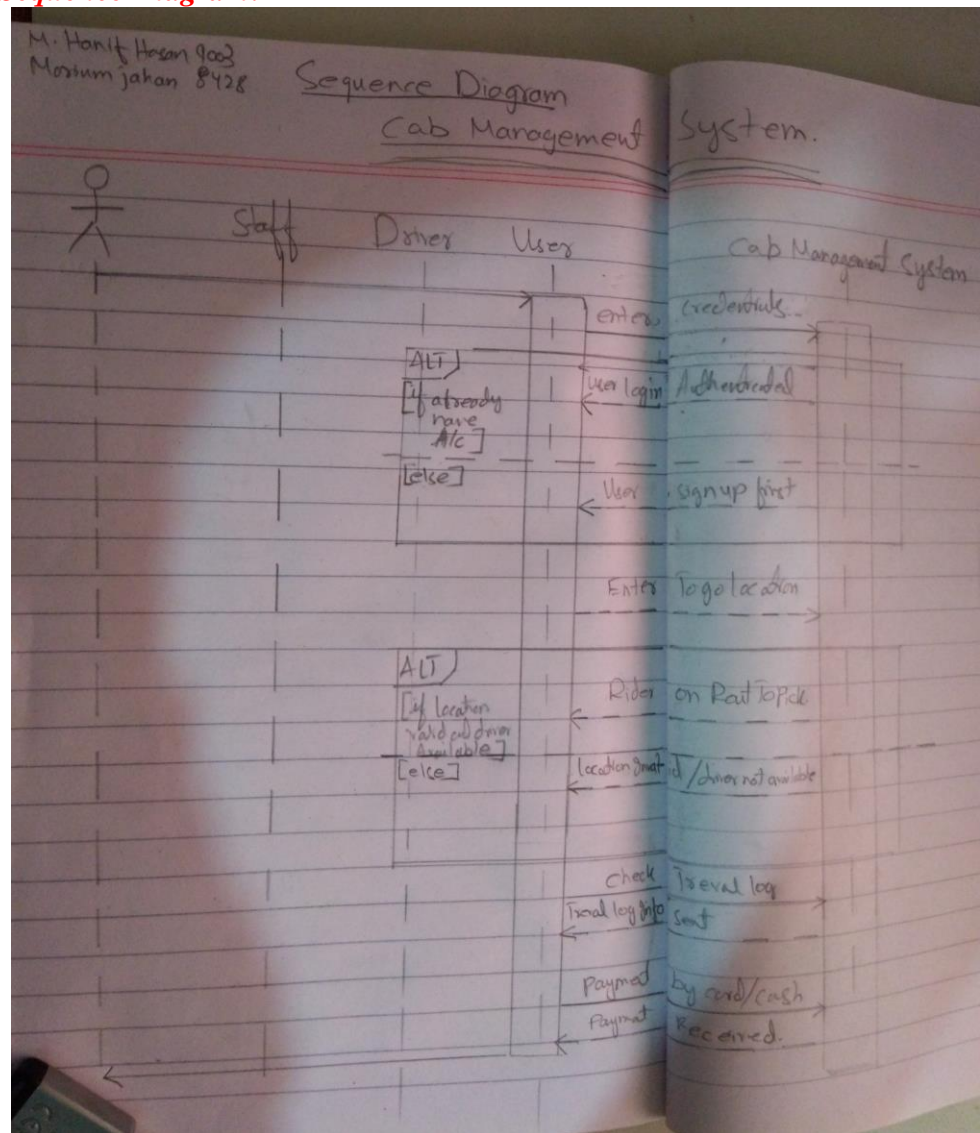 Sequence Diagram:
M. Hanif Hasan 9003
Marium jahan 8428
Sequence Diagram
Cab Management System.
Staff Driver User Cab Management System
enter credentials
ALT
[if already have A/c]
User login Authenticated
[else]
User signup first
Enter To go location
ALT
[if location valid and driver Available]
Rider on Rout To Pick
[else]
location Invalid / driver not available
Check Treval log
Traval log Info sent
Payment by card/cash
Payment Received.